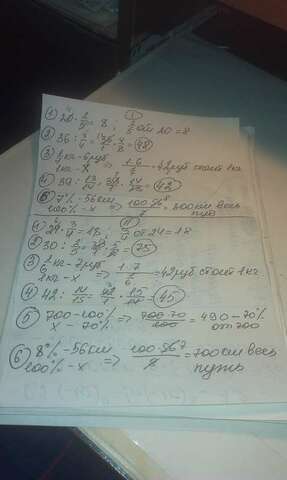 ① 20 · 2/5 = 8 ; Ⅰ 2/5 от 20 = 8
② 36 : 3/4 = 36/1 · 4/3 = 48
③ кг - 6 руб
1 кг - x ⇒ 1·6 = 42 руб стоит 1 кг
④ 39 : 13/14 = 39/1 · 14/13 = 42
⑤ 7% - 56 км
100% - x ⇒ 100·56 = 800 км весь путь
Ⅱ
① 24 · 3/4 = 18 ; 3/4 от 24 = 18
② 30 : 2/5 = 30/1 · 5/2 = 75
③ кг - 7 руб
1 кг - x ⇒ 1·7 = 42 руб стоит 1 кг
④ 42 : 14/15 = 42/1 · 15/14 = 45
⑤ 700 - 100%
x - 70% ⇒ 700·70/100 = 490 - 70% от 700
⑥ 8% - 56 км
100% - x ⇒ 100·56/8 = 700 км весь путь